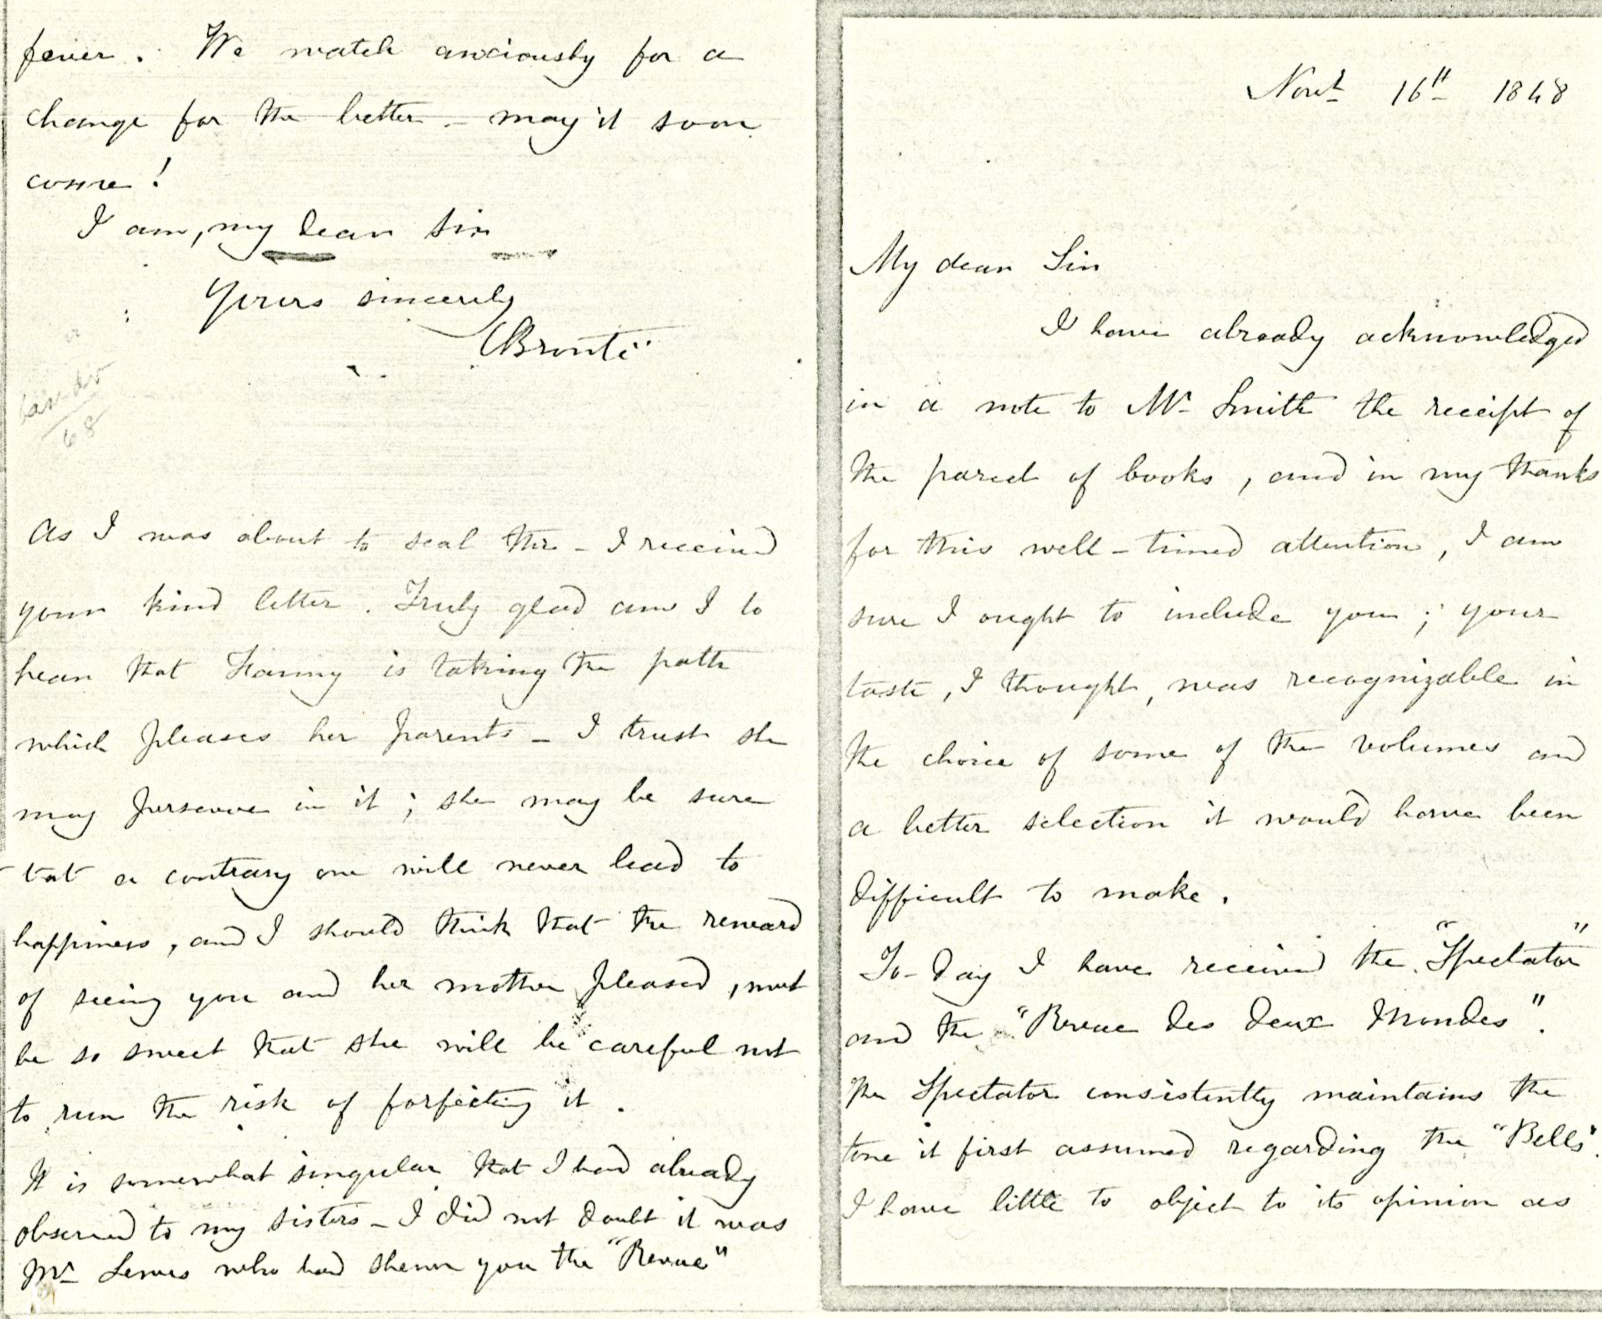 fever. We watch anxiously for a
change for the better - may it soon
come!
I am, my dear sir
Yours sincerely
CBrontë
68
As I was about to seal this - I received
your kind letter. Truly glad am I to
hear that Fanny is taking the path
which pleases her parents - I trust she
may persevere in it; she may be sure
that a contrary one will never lead to
happiness, and I should think that the reward
of seeing you and her mother pleased, must
be so sweet that she will be careful not
to run the risk of forfeiting it.
It is somewhat singular that I had already
observed to my sisters - I did not doubt it was
Mr Lewes who had shewn you the "Revue"
Novr 16th 1848
My dear Sir
I have already acknowledged
in a note to Mr Smith the receipt of
the parcel of books, and in my thanks
for this well-timed attention, I am
sure I ought to include you; your
taste, I thought, was recognizable in
the choice of some of the volumes and
a better selection it would have been
difficult to make.
To-day I have received the "Spectator"
and the "Revue des deux Mondes".
The Spectator consistently maintains the
tone it first assumed regarding the "Bells".
I have little to object to its opinion as